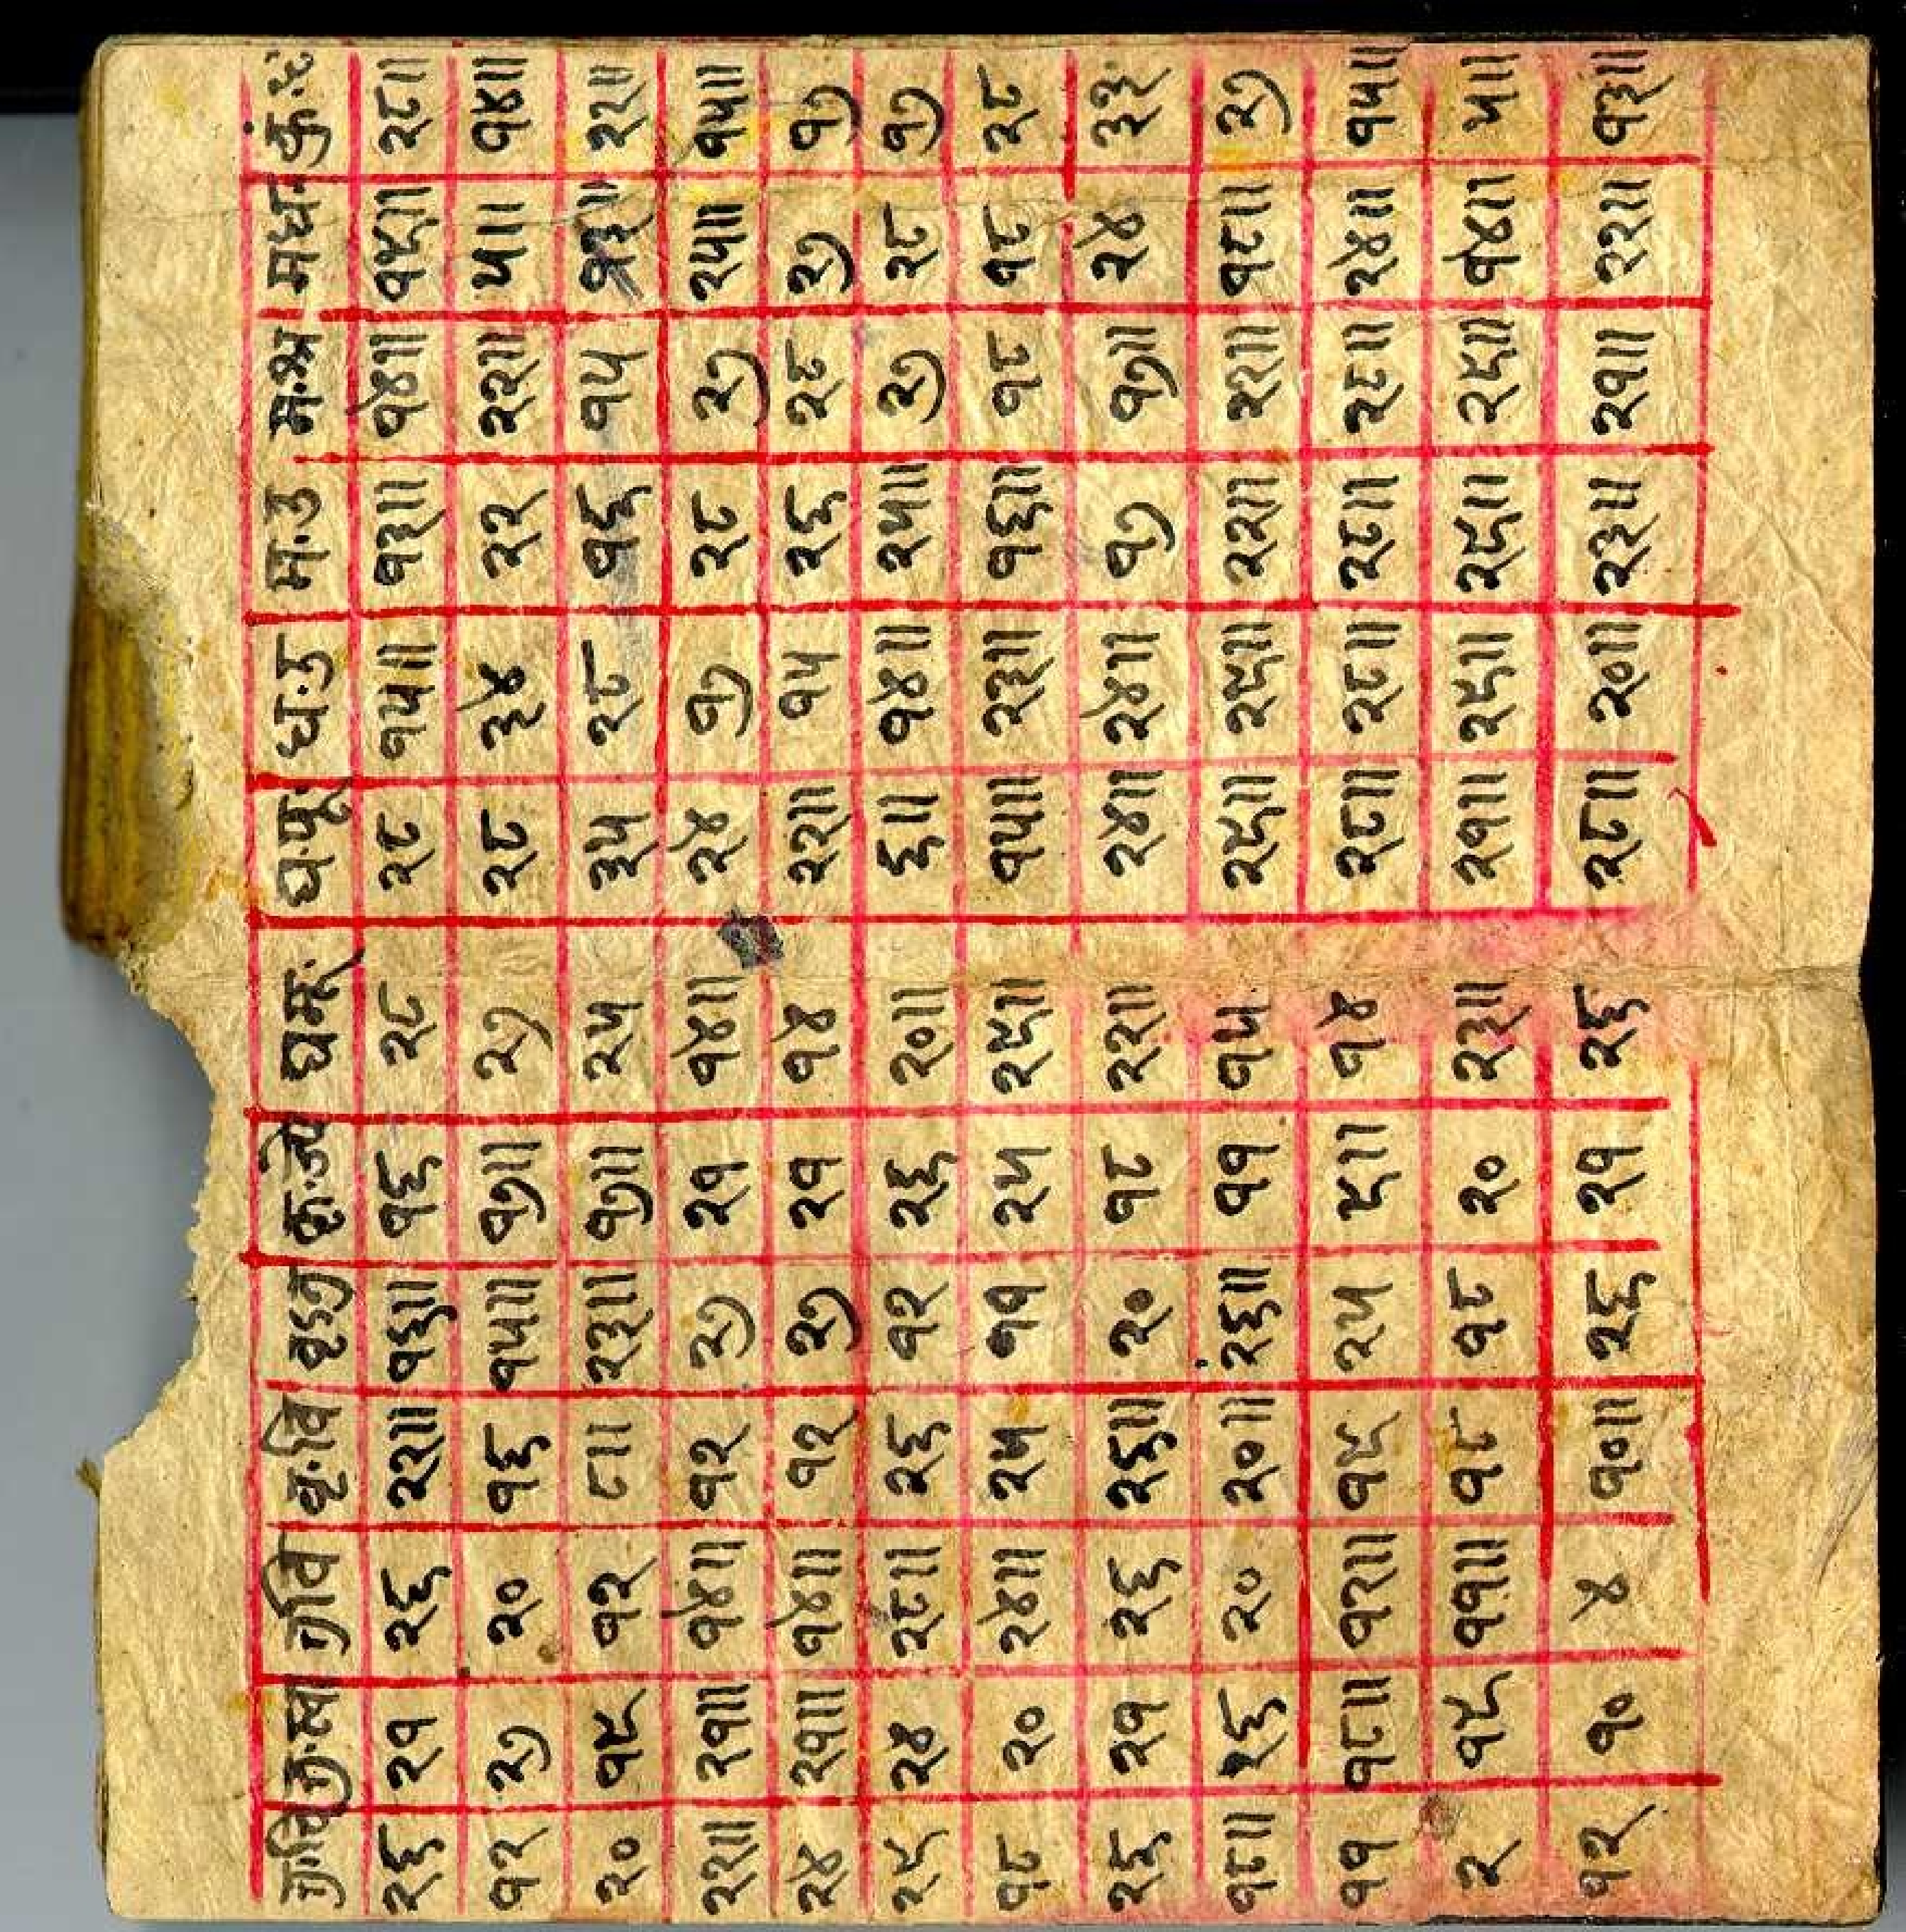 तु.चि तु.स्वा तु.वि वृ.वि वृ.अनु वृ.ज्ये ध.मू. ध.पू. ध.उ म.उ म.श्र म.ध. कुं.ध
२६ २१ २६ २२॥ १६॥ १६ २८ २८ १५॥ १३॥ १४॥ १९॥ २८॥
१२ २७ २० १६ १५॥ १७॥ २७ २८ ३४ २२ २२॥ ५॥ १४॥
२० १९ १२ ८॥ २३॥ १७॥ २५ ३५ २८ १६ १५ १३॥ २२॥
२२॥ २१॥ १४॥ १२ २७ २१ १४॥ २४ १७ २८ २७ २५॥ १५॥
२४ २१॥ १४॥ १२ २७ २१ १४ २२॥ १५ २६ २८ २७ १७
२९ २४ २८॥ २६ १२ २६ २०॥ ६॥ १४॥ २५॥ २७ २८ १७
१८ २० २४॥ २५ ११ २५ २९॥ १५॥ २३॥ १६॥ १८ १८ २८
२६ २१ २६ २६॥ २० १८ २२॥ २४॥ २४॥ १७ १७॥ २४ ३३
१८॥ २६ २० २०॥ २६॥ ११ १५ २९॥ २९॥ २२॥ २२॥ १८॥ २७
११ १८॥ १२॥ १९ २५ ९॥ १४ २८॥ २८॥ २८॥ २८॥ २४॥ १५॥
२ १९ ११॥ १८ १८ २० २३॥ २१॥ २९॥ २९॥ २९॥ १४॥ ५॥
१२ १० ४ १०॥ २६ २१ २६ २८॥ २०॥ २३॥ २१॥ २२॥ १३॥